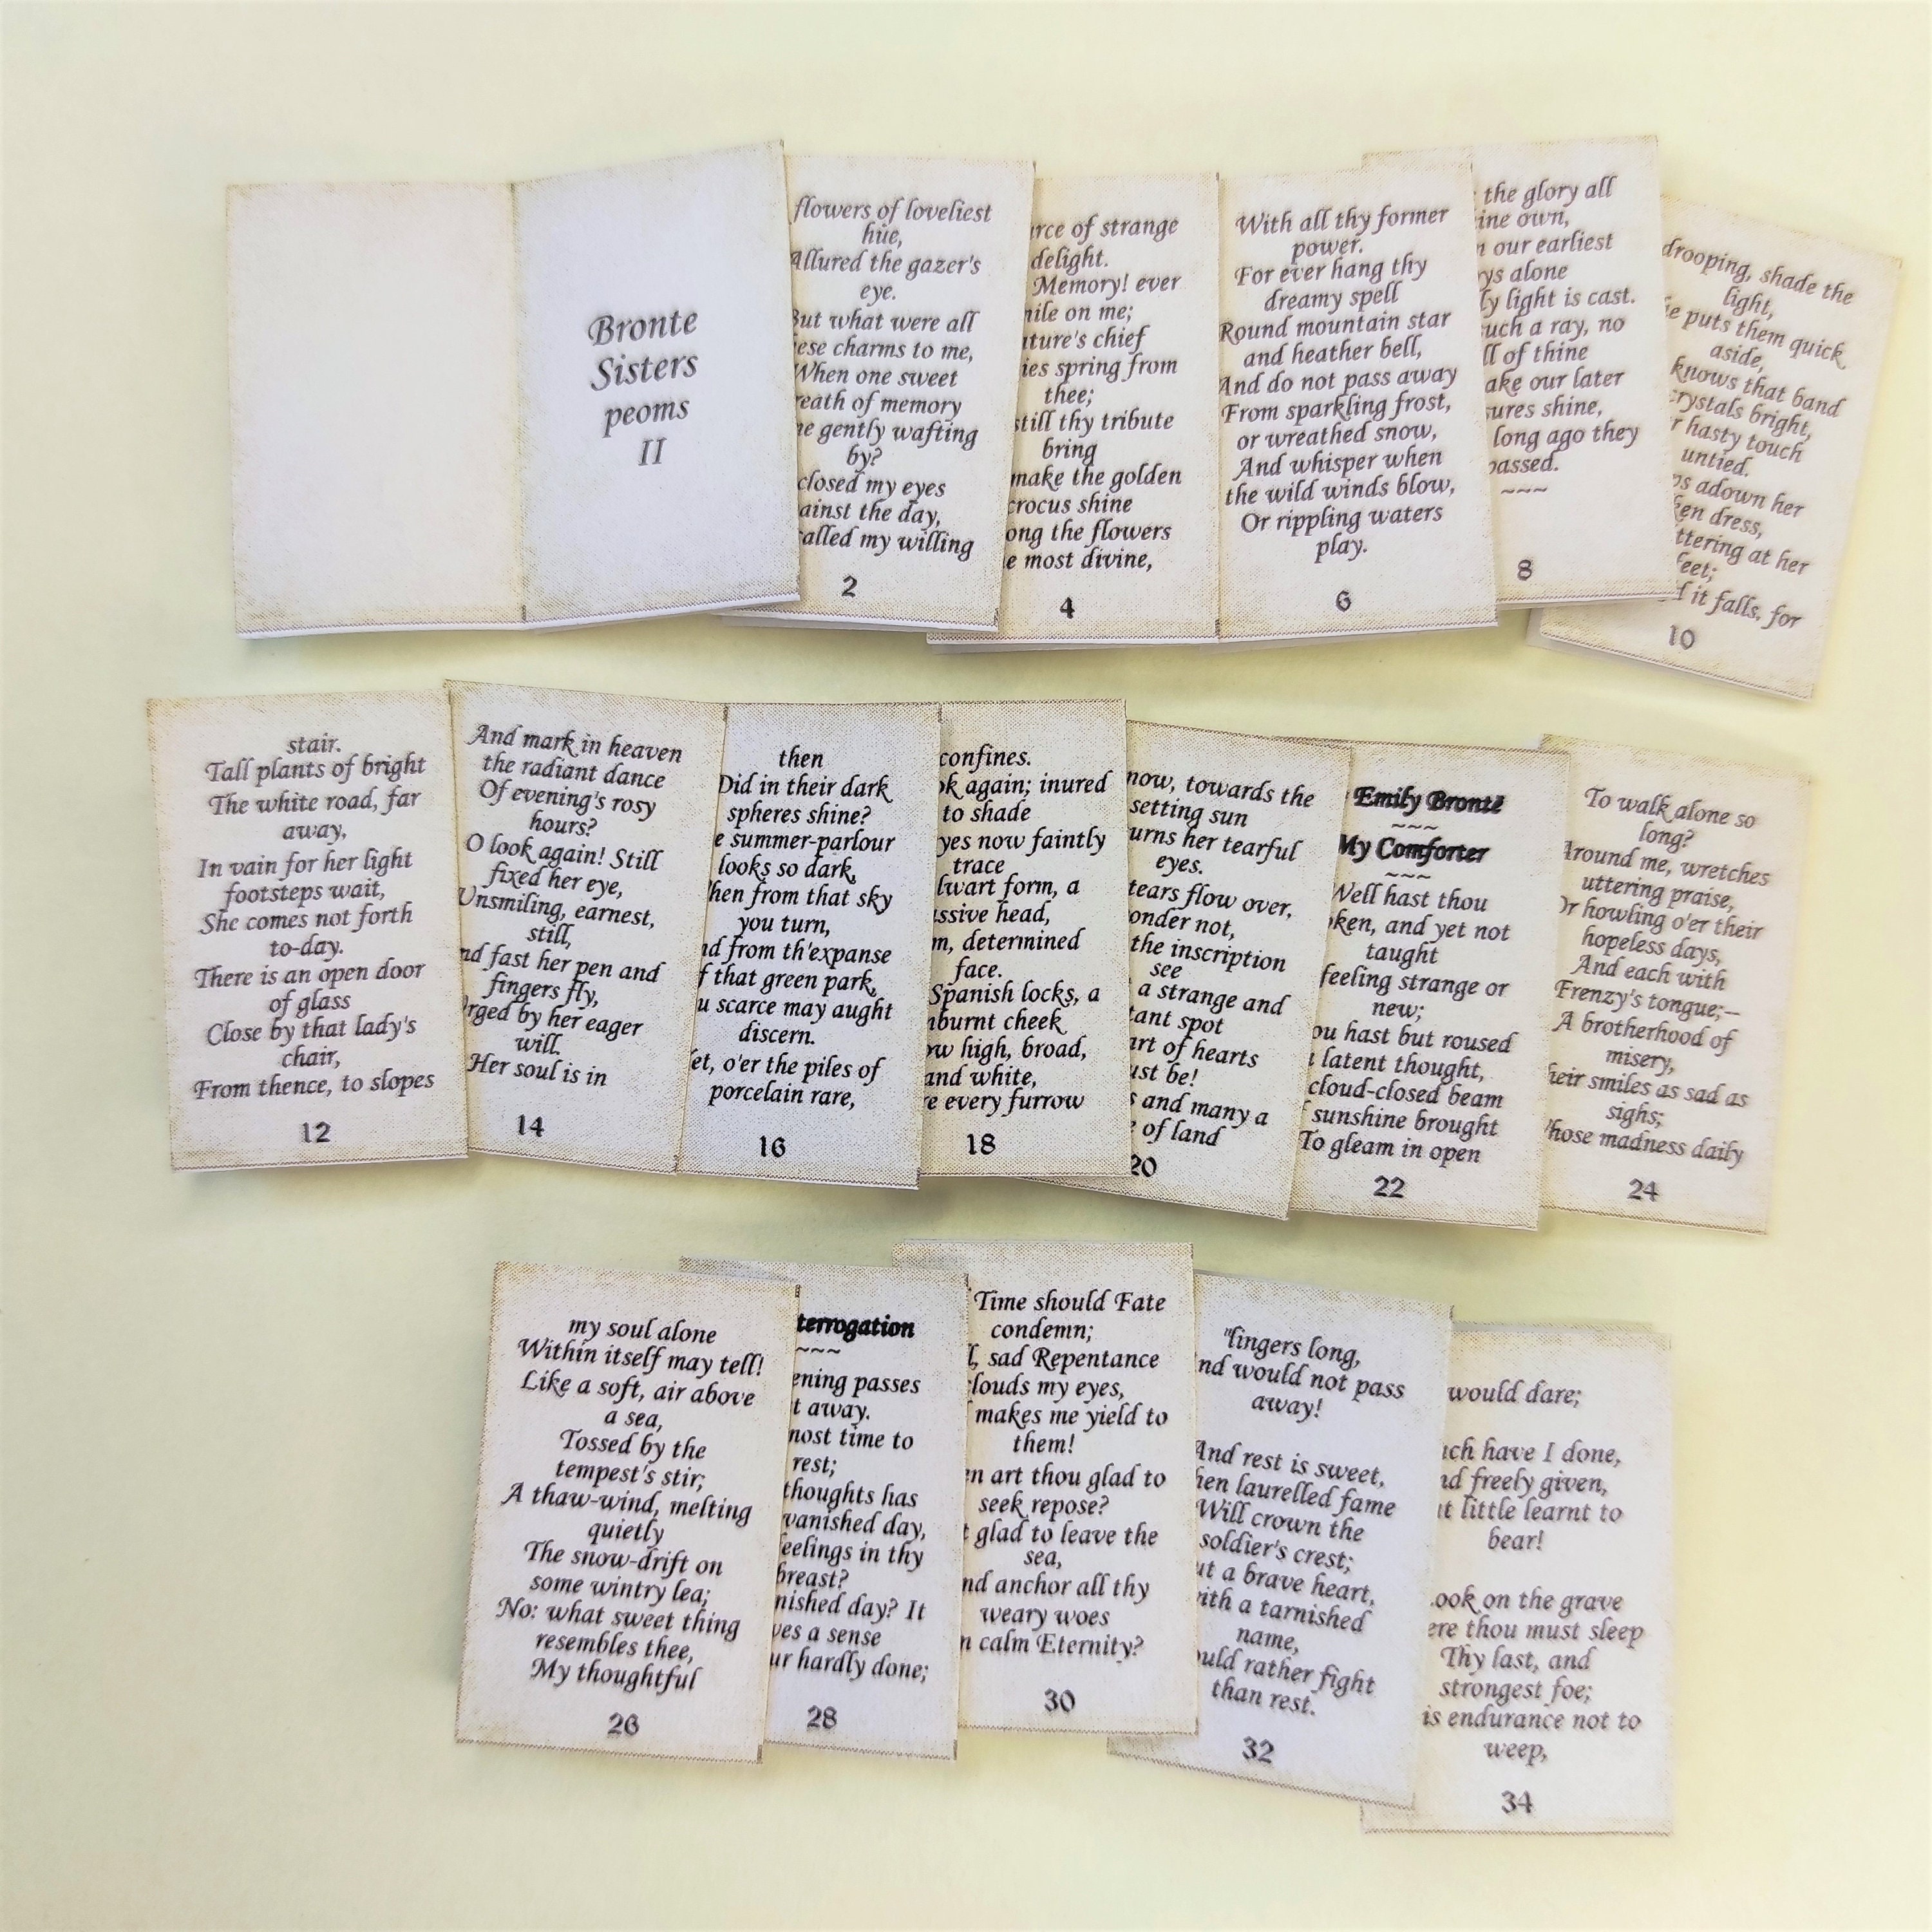 Bronte
Sisters
peoms
II
flowers of loveliest
hue,
Allured the gazer's
eye.
But what were all
charms to me,
When one sweet
of memory
gently wafting
by?
closed my eyes
the day,
my willing
2
of strange
delight.
Memory! ever
on me;
chief
spring from
thee;
still thy tribute
bring
make the golden
crocus shine
the flowers
most divine,
4
With all thy former
power.
For ever hang thy
dreamy spell
Round mountain star
and heather bell,
And do not pass away
From sparkling frost,
or wreathed snow,
And whisper when
the wild winds blow,
Or rippling waters
play.
6
the glory all
own,
our earliest
alone
light is cast.
a ray, no
of thine
our later
shine,
long ago they
passed.
~~~
8
drooping, shade the
light,
puts them quick
aside,
knows that band
crystals bright,
hasty touch
untied.
adown her
dress,
at her
feet;
it falls, for
10
stair.
Tall plants of bright
The white road, far
away,
In vain for her light
footsteps wait,
She comes not forth
to-day.
There is an open door
of glass
Close by that lady's
chair,
From thence, to slopes
12
And mark in heaven
the radiant dance
Of evening's rosy
hours?
O look again! Still
fixed her eye,
Unsmiling, earnest,
still,
fast her pen and
fingers fly,
Urged by her eager
will.
Her soul is in
14
then
Did in their dark
spheres shine?
summer-parlour
looks so dark,
from that sky
you turn,
from th'expanse
that green park,
scarce may aught
discern.
o'er the piles of
porcelain rare,
16
confines.
again; inured
to shade
now faintly
trace
form, a
head,
determined
face.
Spanish locks, a
cheek
high, broad,
and white,
every furrow
18
now, towards the
setting sun
her tearful
eyes.
tears flow over,
not,
the inscription
see
a strange and
spot
of hearts
be!
and many a
of land
20
Emily Bronte
~~~
My Comforter
~~~
Well hast thou
and yet not
taught
feeling strange or
new;
hast but roused
latent thought,
cloud-closed beam
sunshine brought
To gleam in open
22
To walk alone so
long?
Around me, wretches
uttering praise,
Or howling o'er their
hopeless days,
And each with
Frenzy's tongue;—
A brotherhood of
misery,
smiles as sad as
sighs;
Whose madness daily
24
my soul alone
Within itself may tell!
Like a soft, air above
a sea,
Tossed by the
tempest's stir;
A thaw-wind, melting
quietly
The snow-drift on
some wintry lea;
No: what sweet thing
resembles thee,
My thoughtful
26
terrogation
~~~
passes
away.
time to
rest;
thoughts has
vanished day,
in thy
breast?
day? It
a sense
hardly done;
28
Time should Fate
condemn;
sad Repentance
clouds my eyes,
makes me yield to
them!
art thou glad to
seek repose?
glad to leave the
sea,
anchor all thy
weary woes
calm Eternity?
30
"lingers long,
would not pass
away!
And rest is sweet,
laurelled fame
Will crown the
soldier's crest;
a brave heart,
a tarnished
name,
rather fight
than rest.
32
would dare;
have I done,
freely given,
little learnt to
bear!
on the grave
thou must sleep
Thy last, and
strongest foe;
is endurance not to
weep,
34